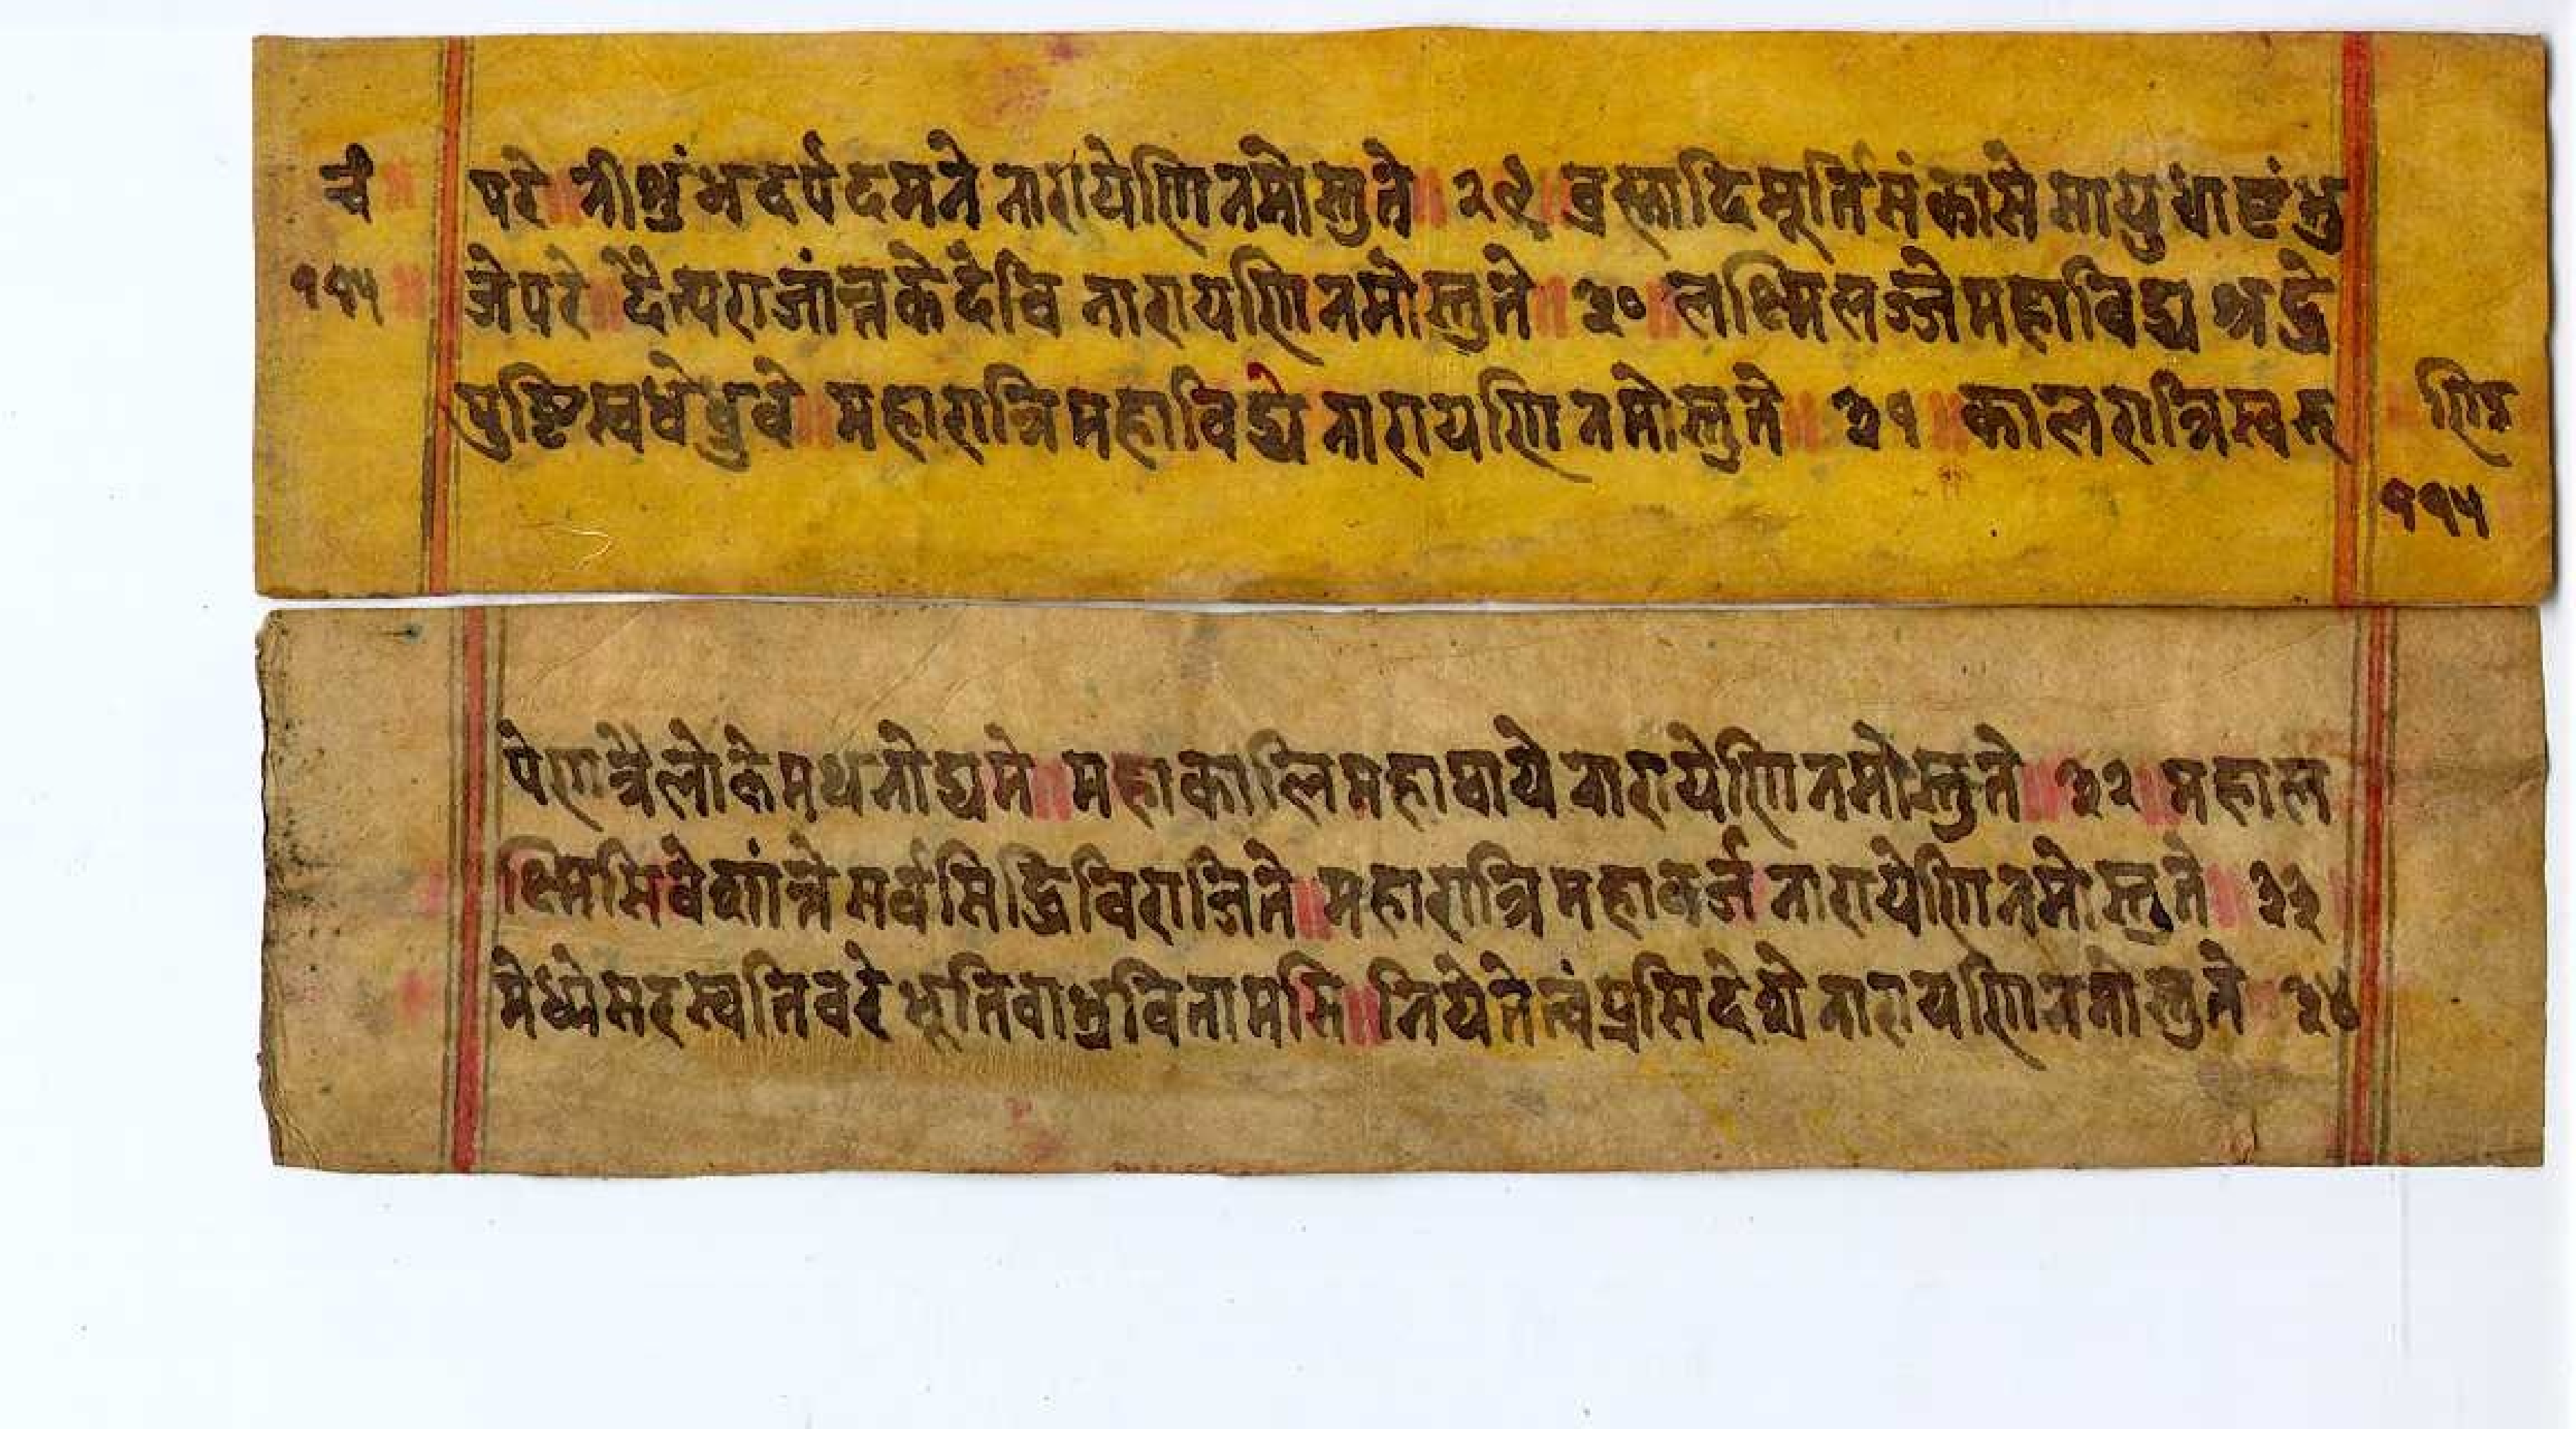 चं परे ॥ नीशुंभदर्पदमने नारायेणि नमोस्तुते ॥ २९ ॥ ब्रह्मादिमूर्तिसंकासे सायुधाष्टंभु
११५ जेपरे ॥ दैत्यराजांन्तकेदेवि नारायणि नमोस्तुते ॥ ३० ॥ लक्ष्मिलज्जेमहाविद्य श्रद्धे
पुष्टिस्वधेध्रुवे ॥ महारात्रिमहाविद्ये नारायणि नमोस्तुते ॥ ३१ ॥ कालरात्रिस्वरू
११५
पेणत्रैलोकेमथनोद्यमे ॥ महाकालिमहामाये नारायेणि नमोस्तुते ॥ ३२ ॥ महाल
क्ष्मिसिवेशांन्ते सर्वसिद्धिविराजिते ॥ महारात्रि नारायेणि नमोस्तुते ॥ ३३
मेध्येसरस्वतिवरे भूतिवाभ्रवितामसि ॥ नियेतेत्वंप्रसिदेशे नारायणि नमोस्तुते ३४